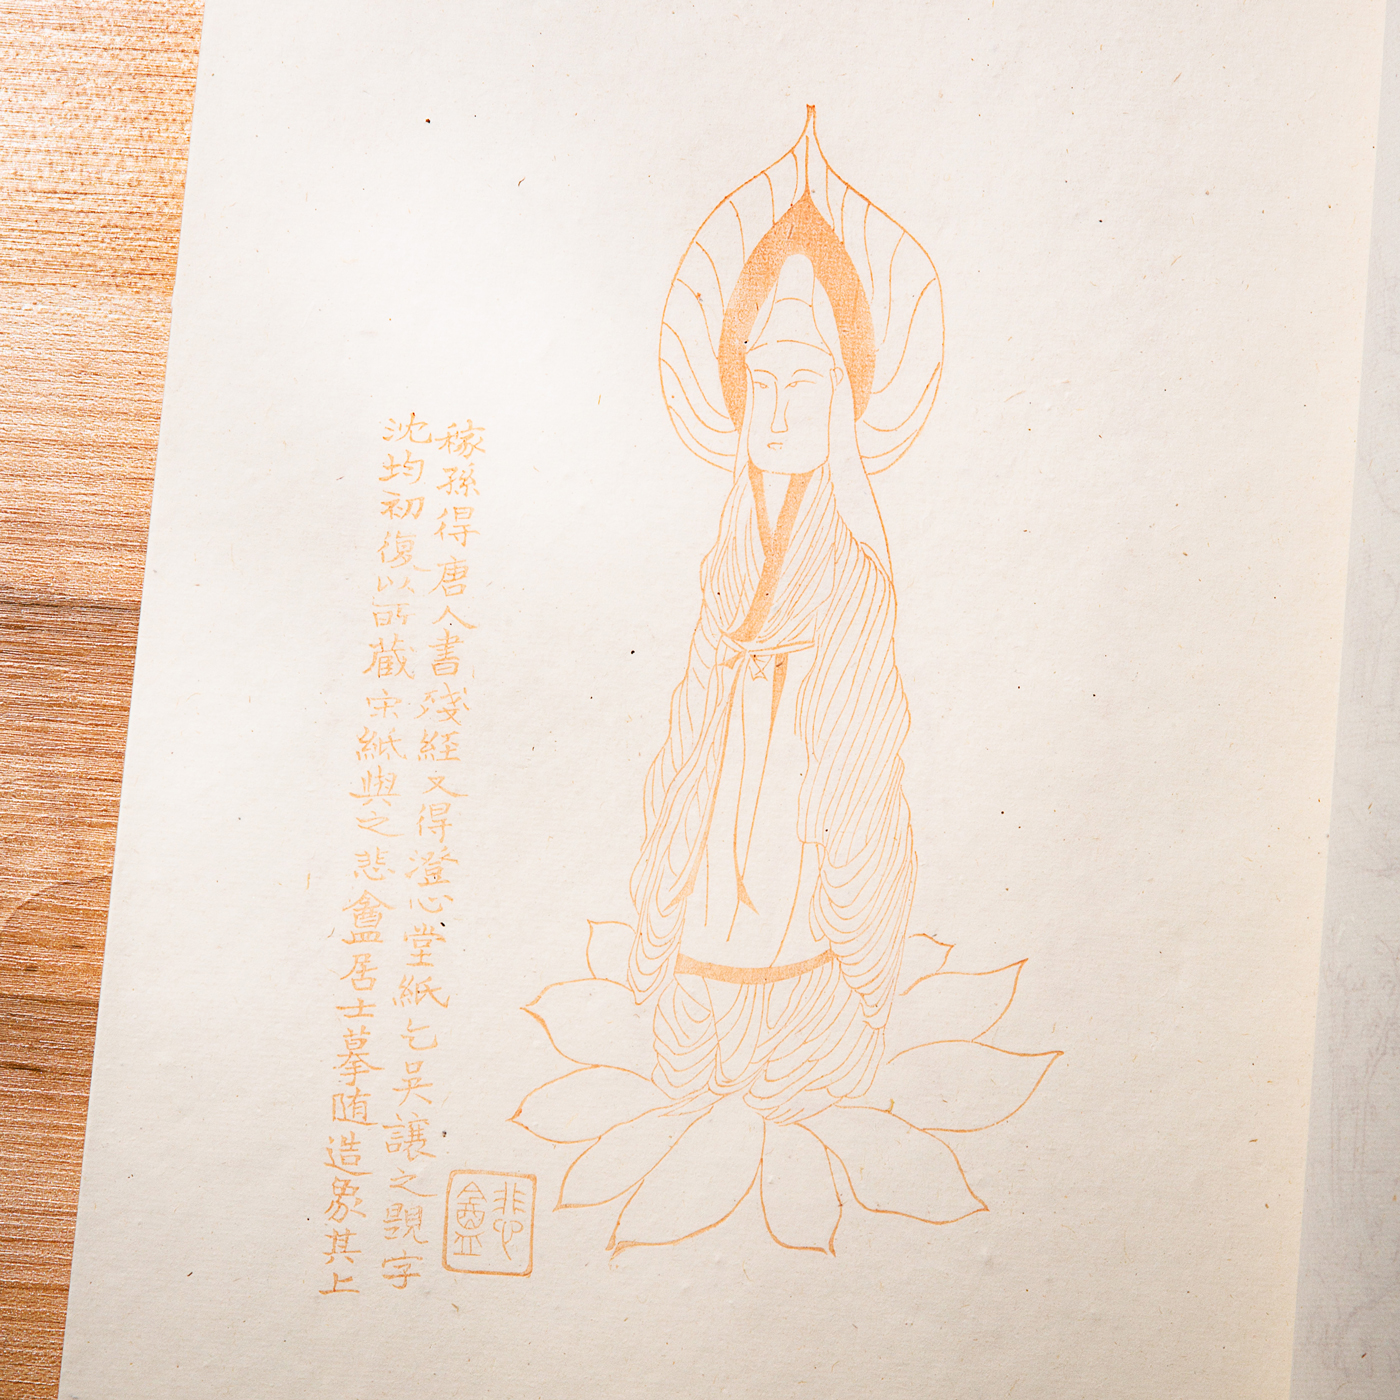 稼孫得唐人書殘經又得澄心堂紙乞吳讓之題字
沈均初復以所藏宋紙與之悲盦居士摹隋造象其上
悲盦